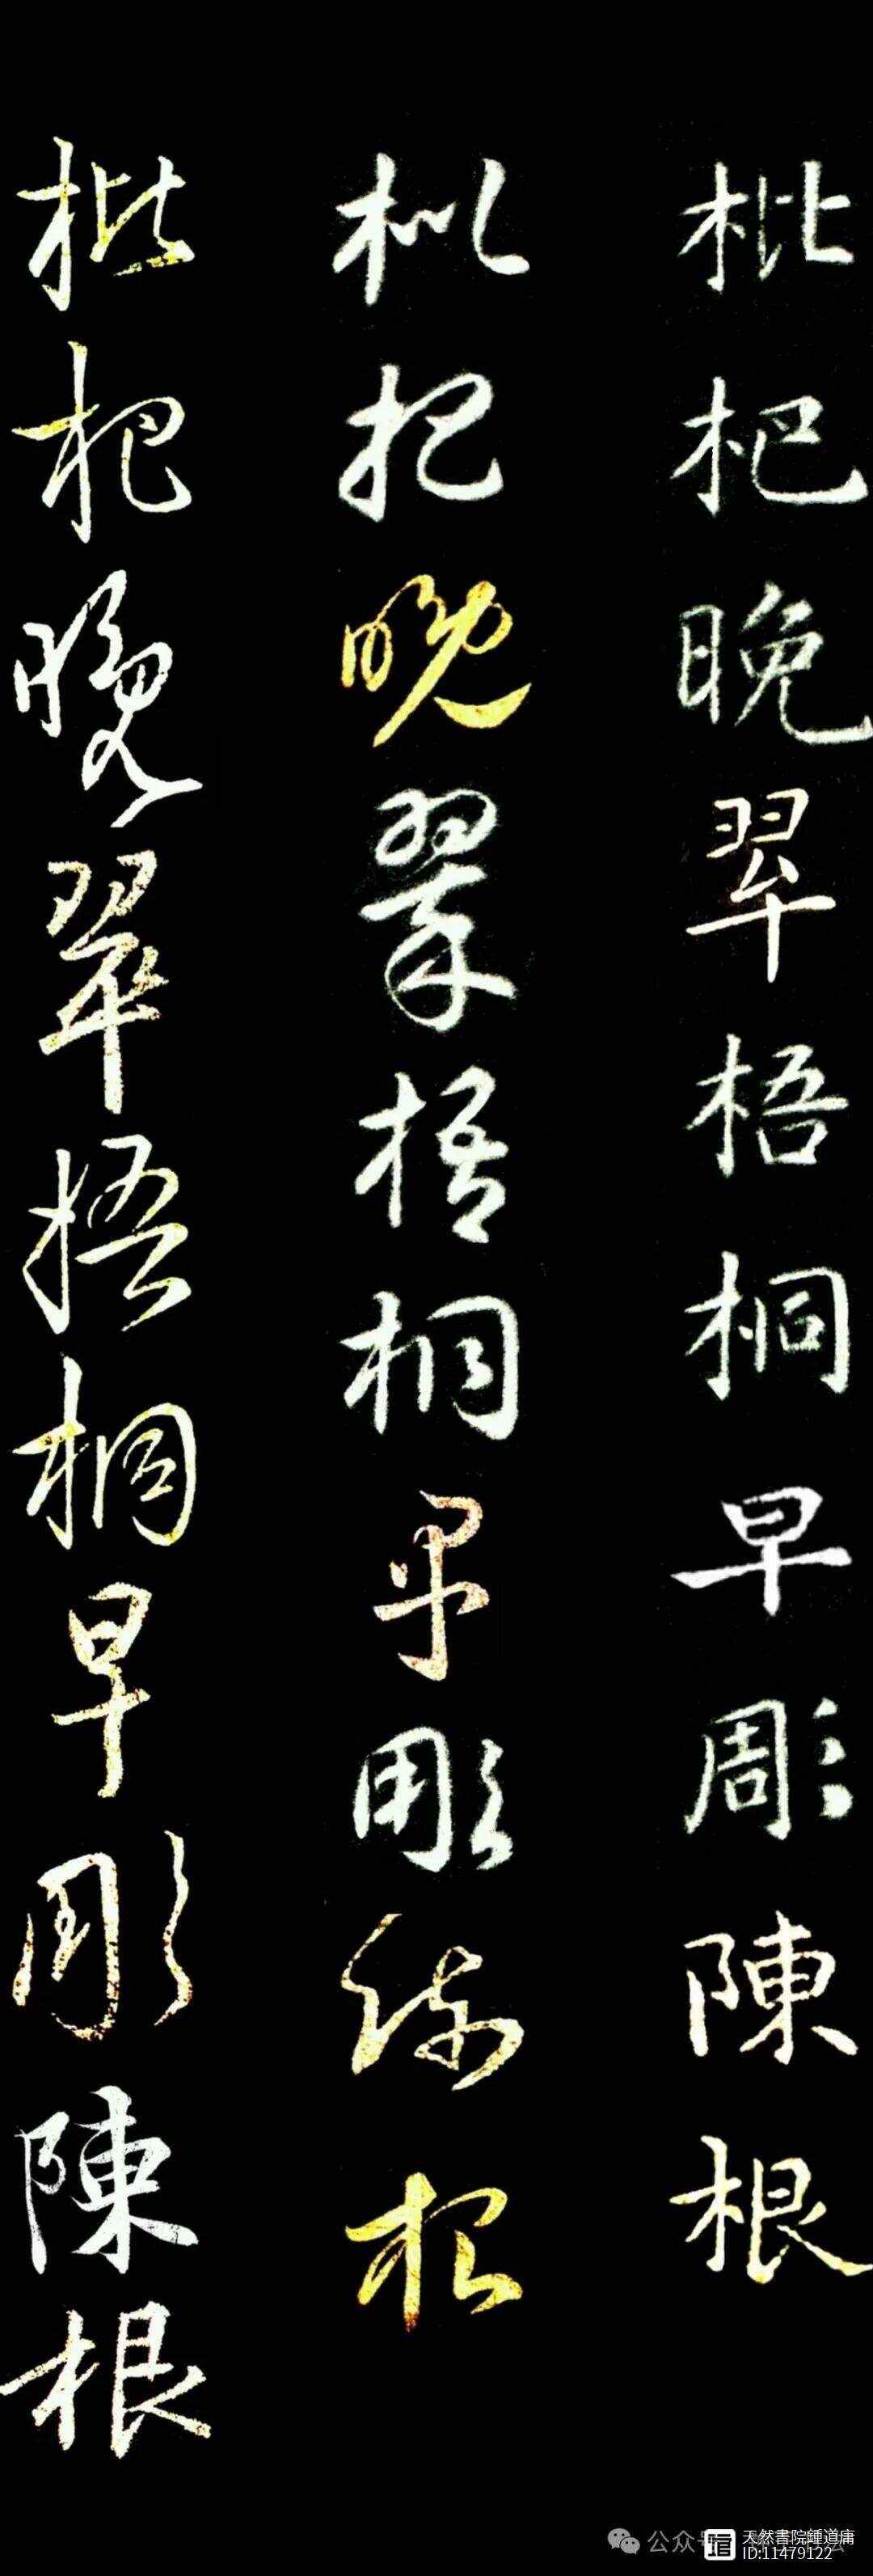 枇杷晚翠梧桐早彫陳根
枇杷晚翠梧桐早彫陳根
枇杷晚翠梧桐早彫陳根
公众号
天然書院鍾道庸
ID:11479122